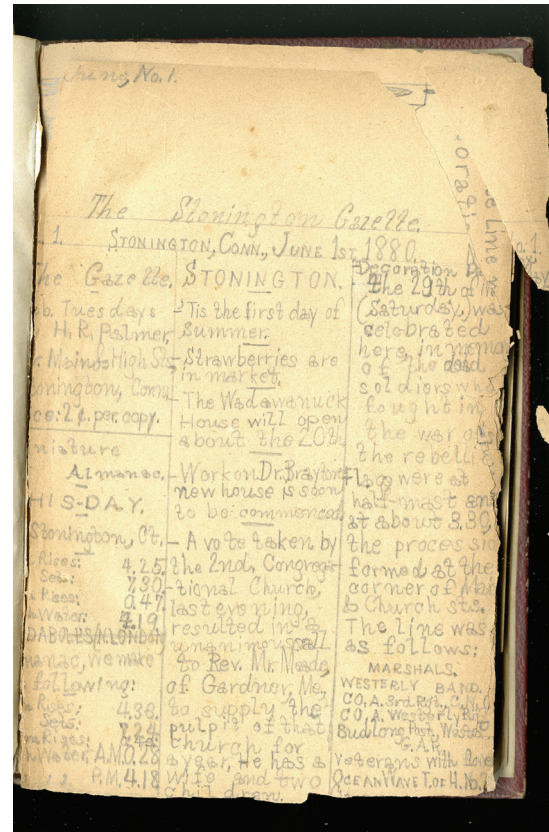 No. 1.
The Stonington Gazette.
1. STONINGTON, CONN., JUNE 1ST, 1880. No. 1.
The Gazette.
Tuesdays
H. R. Palmer,
Main & High Sts,
Stonington, Conn.
2 ¢. per. copy.
Miniature
Almanac.
THIS-DAY.
Stonington, Ct.
Rises: 4.25
Sets: 7.30
Rises: 0.47
Water: 4.19
we make
following:
Rises: 4.38
Sets: 7.24
Rises:
Water, A.M. 0.28
P.M. 4.18
STONINGTON.
-'Tis the first day of
summer.
-Strawberries are
in market.
-The Wadawanuck
House will open
about the 20th
-Work on Dr. Brayton
new house is soon
to be commenced
-A vote taken by
the 2nd. Congrega-
-tional Church,
last evening,
resulted in a
unanimous call
to Rev. Mr. Meade,
of Gardner, Me.,
to supply the
pulpit of that
church for
a year, He has a
wife and two
children.
Decoration
The 29th of
(Saturday,) was
celebrated
here, in
of the dead
soldiers who
fought in
the war of
the
Flags were at
half-mast an
at about 3.30,
the
formed at the
corner of
& Church sts.
The line was
as follows:
MARSHALS.
WESTERLY BAND.
CO, A. 3rd
CO, A. Westerly
Budlong Post,
G.A.R.
Veterans with
OCEAN WAVE T. of H. No.
se Line
orati